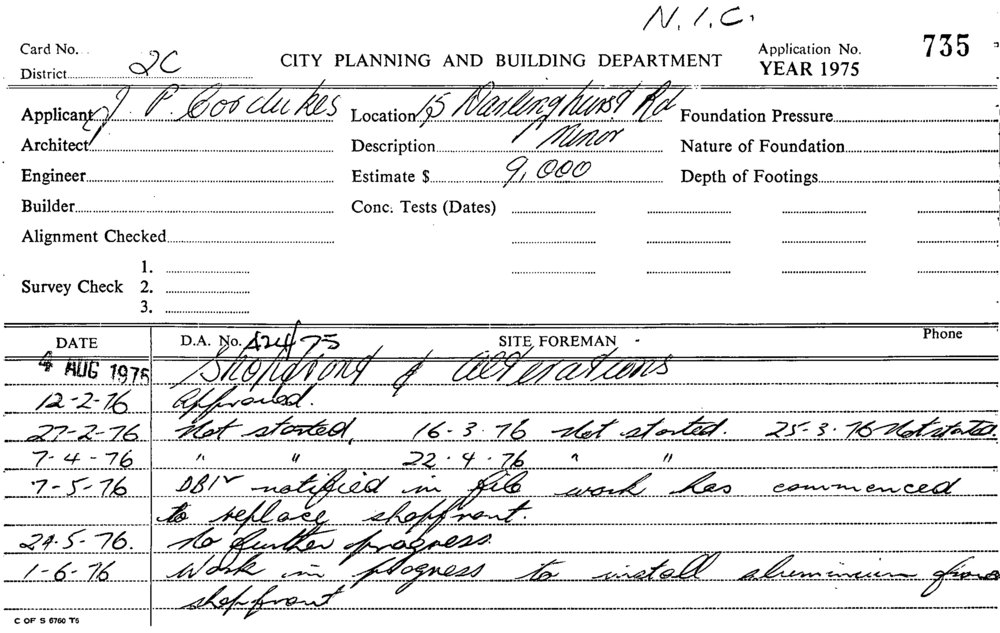 N.I.C.
Card No.
District 2C
CITY PLANNING AND BUILDING DEPARTMENT
Application No. 735
YEAR 1975
Applicant J P Cordukes
Location 15 Darlinghurst Rd
Foundation Pressure
Architect
Description Minor
Nature of Foundation
Engineer
Estimate $ 9,000
Depth of Footings
Builder
Conc. Tests (Dates)
Alignment Checked
Survey Check
1.
2.
3.
DATE
D.A. No. 424/75
SITE FOREMAN
Phone
4 AUG 1975 Shopfront & alterations
12-2-76 Approved.
27-2-76 Not started, 16-3-76 Not started. 25-3-76 Not started.
7-4-76 " " 22-4-76 " "
7-5-76 notified in file work has commenced
to replace shopfront.
24-5-76. No further progress.
1-6-76 Work in progress to install aluminium
shopfront
C OF S 6760 T5